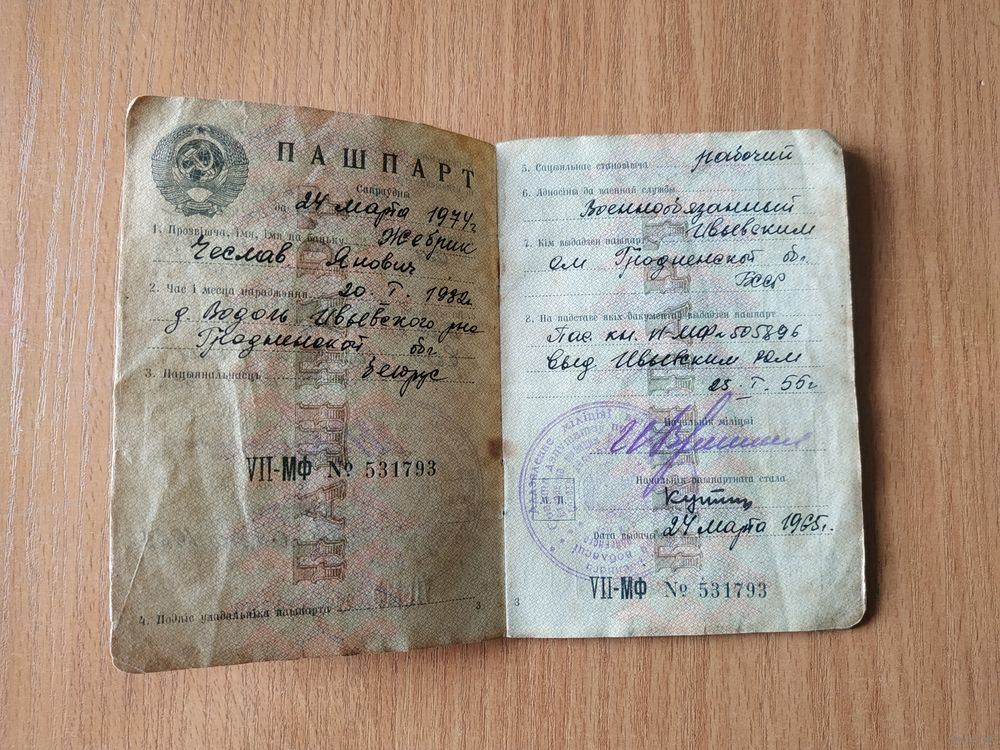 ПАШПАРТ
Сапраўдны
да 24 марта 1974 г
1. Прозвішча, імя, імя па бацьку Жебрик
Чеслав Янович
2. Час і месца нараджэння 20. I.
Ивьевского р-на
Гродненской обл
3. Нацыянальнасць белорус
VII-МФ № 531793
4. Подпіс уладальніка пашпарта
3
5. Сацыяльнае становішча рабочий
6. Адносіны да ваеннай службы
Военнообязанный
7. Кім выдадзен пашпарт Ивьевским
ом Гродненской обл.
БССР
8. На падставе якіх дакументаў выдадзен пашпарт
Пас. кн. 505896
выд Ивьевским
25. I. 55 г
Начальнік міліцыі
М. П.
Начальнік пашпартнага стала
Дата выдачы 24 марта 1965 г.
VII-МФ № 531793
3